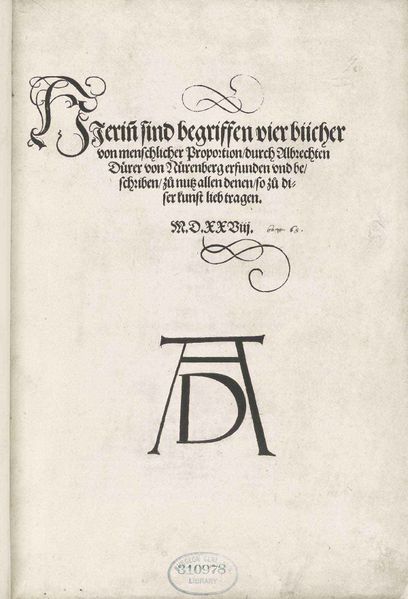 HJeriñ sind begriffen vier bücher
von menschlicher Proportion/durch Albrechten
Dürer von Nürenberg erfunden vnd be/
schriben/zů nutz allen denen/so zů di-
ser kunst lieb tragen.
M.D.XXViij.
AD
310978
LIBRARY